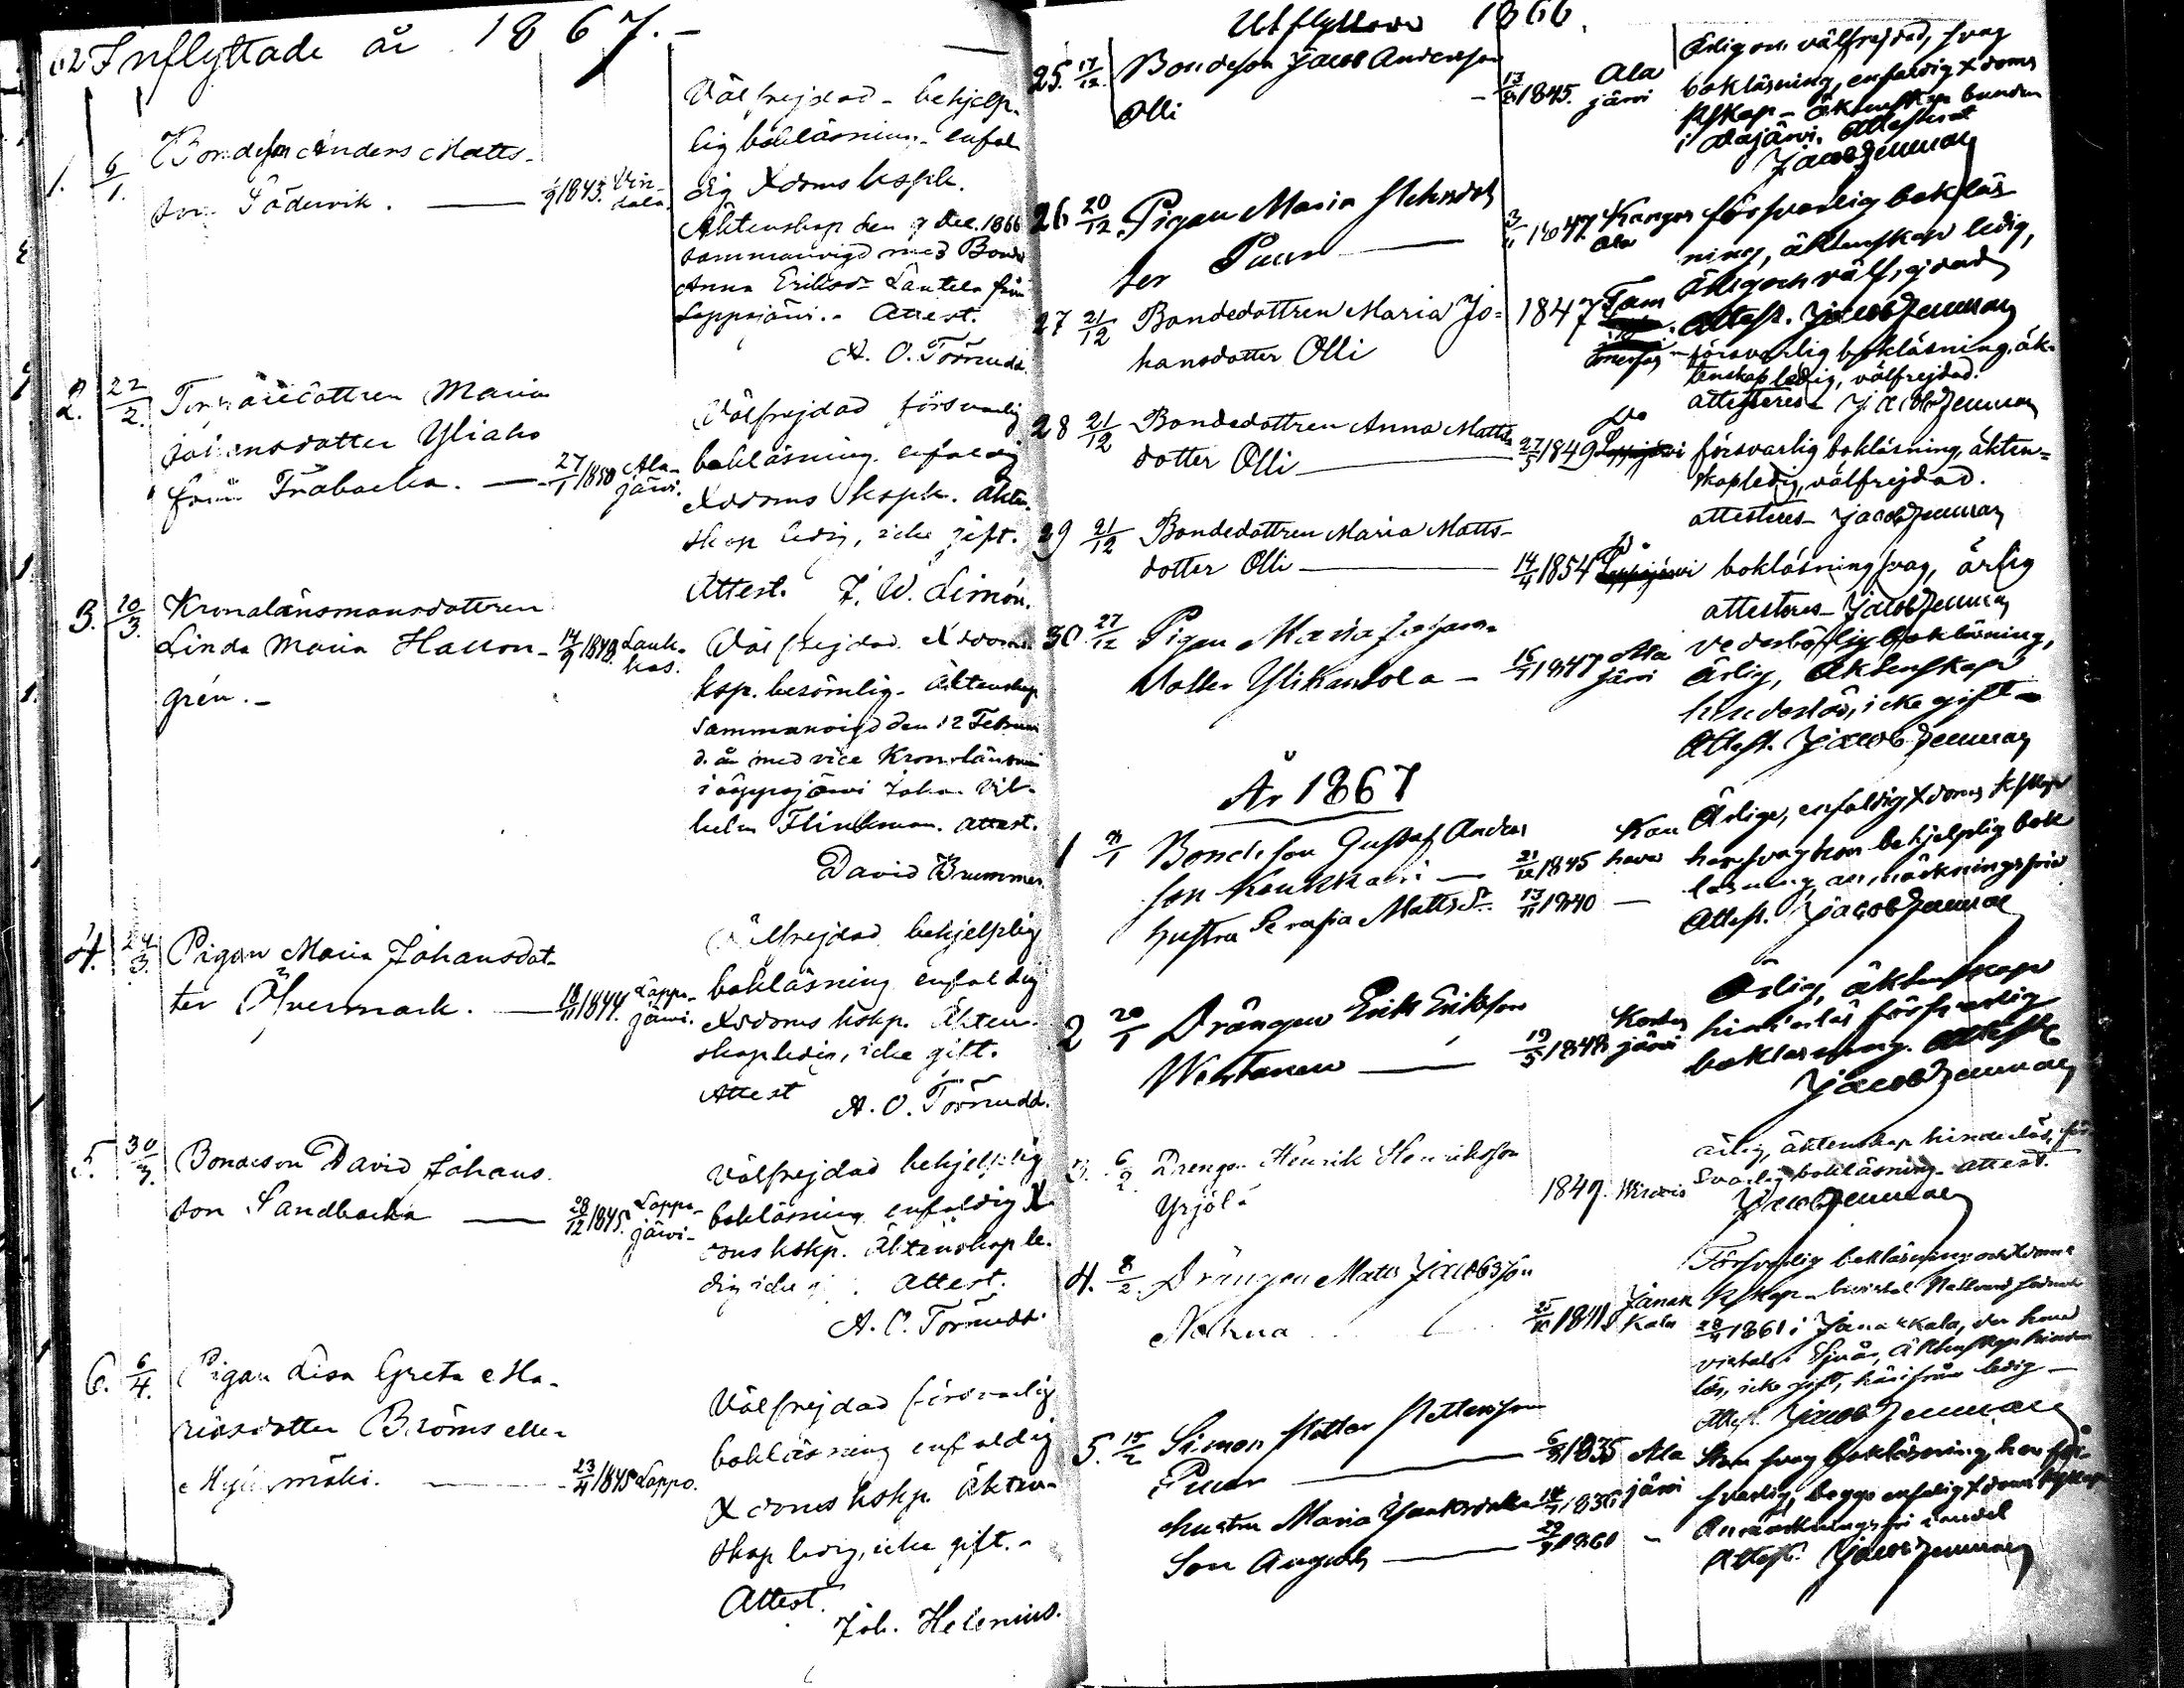 62 Inflyttade år 1867.-
1. 6/1. Bondeson Anders Matts-
son Södervik. — 1843. Vin-
dala.
Välfrejdad - behjelp-
lig bokläsning - enfal
dig Xdoms kspk.
Äktenskap den 9 Dec. 1866
sammanvigd med Bonded
Anna Eriksdr Lantela från
Lappojärvi.- Attest.
A. O. Törnudd.
2. 22/2. Torparedottren Maria
Johansdotter Yliaho
från Träbacka. — 27/1 1850 Ala-
järvi.
Välfrejdad försvarlig
bokläsning enfaldig
Xdoms kspk. äkten-
skap ledig, icke gift.
Attest. J. W. Limón.
3. 10/3. Kronolänsmansdottren
Linda Maria Hallon- 14/9 1848. Lauk-
kas.
grén.-
Välfrejdad Xdoms
ksp. besömlig - Äktenskap
sammanvigd den 12 Februari
d. år med vice Kronolänsman
i Lappojärvi Johan Vil-
helm Flinkman. attest.
David Brummer.
4. 24/3. Pigan Maria Johansdot-
ter Öfvermark. — 18/11 1844. Lappo-
järvi.
Välfrejdad behjelplig
bokläsning enfaldig
Xdoms kskp. Äkten-
skap ledig, icke gift.
Attest A. O. Törnudd.
5. 30/3. Bondeson David Johans
son Sandbacka — 28/12 1845. Lappo-
järvi-
Välfrejdad behjelplig
bokläsning enfaldig X
doms kskp. Äktenskap le-
dig icke . Attest.
A. O. Törnudd.
6. 6/4. Pigan Lisa Greta Ma-
riasdotter Bröms eller
Myllymäki. — 23/4 1845 Lappo.
Välfrejdad försvarlig
bokläsning enfaldig
Xdoms kskp. Äkten-
skap ledig, icke gift.-
Attest.
Joh. Helenius.
Utflyttade 1866.
25. 17/12. Bondeson Jacob Andersson
Olli — 1845. Ala
järvi
Ärlig och välfrejdad, svag
bokläsning, enfaldig Xdoms
kskap - äktenskap bunden
i Alajärvi. Attesterat
Jacob Zennman
26 20/12. Pigan Maria
ter Puur — 1847 Kangas
ala
försvarlig bokläs
ning, äktenskap ledig,
ärlig och välfrejdad
Attest. Jacob Zennman
27 21/12 Bondedottren Maria Jo-
hansdotter Olli 1847 Tam
merfors
- försvarlig bokläsning, äk-
tenskap ledig, välfrejdad.
attesteras Jacob Zennman
28 21/12 Bondedottren Anna Matts
dotter Olli — 27/5 1849 Do
försvarlig bokläsning, äkten-
skap ledig, välfrejdad.
attesteras - Jacob Zennman
29 21/12 Bondedottren Maria Matts-
dotter Olli — 14/4 1854 Do
bokläsning svag, ärlig
attesteras - Jacob Zennman
30 27/12 Pigan Maria Johans-
dotter Ylikantola — 1847 Ala
järvi
vederbörlig bokläsning,
ärlig, äktenskap
hinderlös, icke gift -
Attest. Jacob Zennman
År 1867
1 Bondeson Gustaf Anders
son Koukkari — 21/12 1845 Kau
hava
hustru Serafia Mattsdr 13/11 1840 —
Ärlige, enfaldig Xdoms kskap
han svag hon behjelplig bok
läsning, anmärkningsfria
Attest. Jacob Zennman
2 20/1 Drängen Erik Eriksson
Wertanen — 19/5 1848 Kortes
järvi
Ärlig, äktenskaps
hinderlös försvarlig
bokläsning. Attest
Jacob Zennman
3. 6/2 Drengen Henrik Henriksson
Yrjölä 1849. Wirdois
ärlig, äktenskap hinderlös, för
svarlig bokläsning. attest.
Jacob Zennman
4. 8/2. Drängen Matts Jacobsson
Nohna 1841 Janak
kala
Försvarlig bokläsning och Xdoms
kskap - bevistat Nattvard sednast
1861 i Janakkala, der han
vistats 5 år, Äktenskaps hinder
lös, icke gift, härifrån ledig -
Attest. Jacob Zennman
5. 15/2 Simon
Puur — 1835 Ala
järvi
hustru Maria Jaakobsdr 1836
Son August — 29/7 1860 -
Han svag bokläsning, hon för-
svarlig, begge enfaldig Xdoms kskap
Anmärkningsfri vandel
Attest. Jacob Zennman